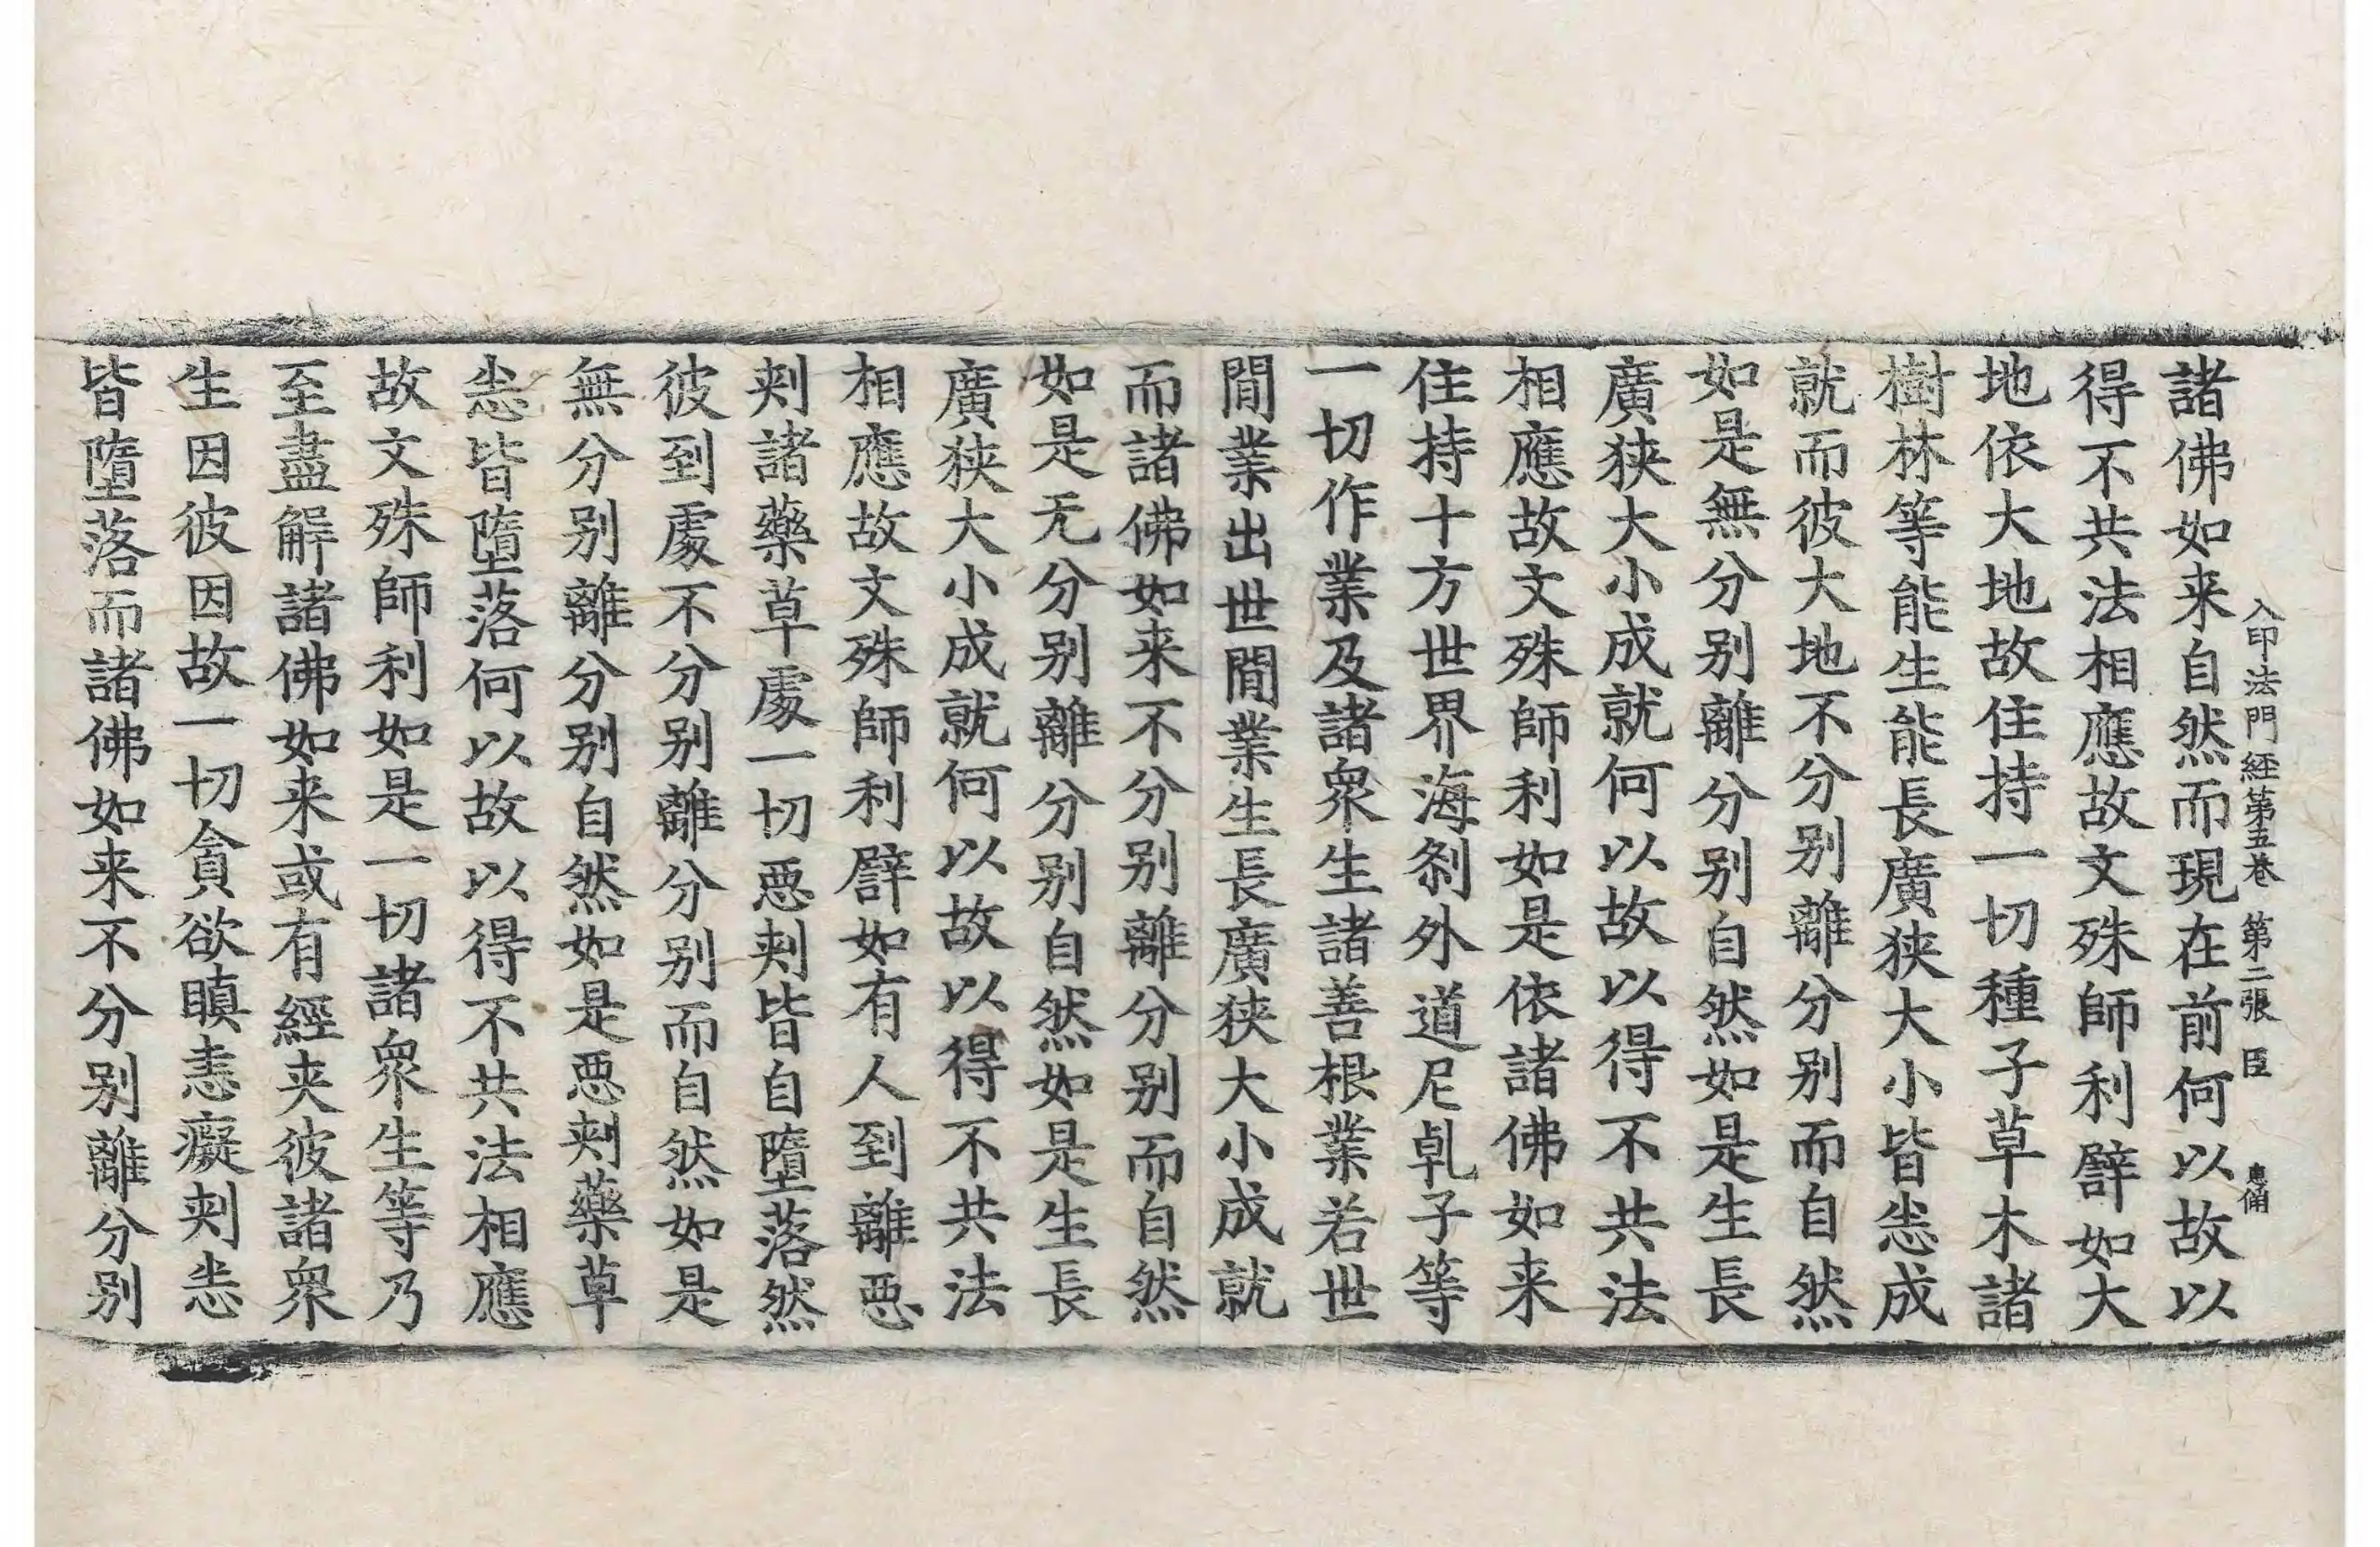 入印法門経第五巻 第二張 臣
諸佛如来自然而現在前何以故以
得不共法相應故文殊師利譬如大
地依大地故住持一切種子草木諸
樹林等能生能長廣狹大小皆悉成
就而彼大地不分别離分别而自然
如是無分别離分别自然如是生長
廣狹大小成就何以故以得不共法
相應故文殊師利如是依諸佛如来
住持十方世界海剎外道尼乹子等
一切作業及諸衆生諸善根業若世
間業出世間業生長廣狹大小成就
而諸佛如来不分别離分别而自然
如是无分别離分别自然如是生長
廣狹大小成就何以故以得不共法
相應故文殊師利譬如有人到離惡
刺諸藥草處一切惡刺皆自墮落然
彼到處不分别離分别而自然如是
無分别離分别自然如是惡刺藥草
悉皆墮落何以故以得不共法相應
故文殊師利如是一切諸衆生等乃
至盡解諸佛如来或有經夹彼諸衆
生因彼因故一切貪欲瞋恚癡刺悉
皆墮落而諸佛如来不分别離分别